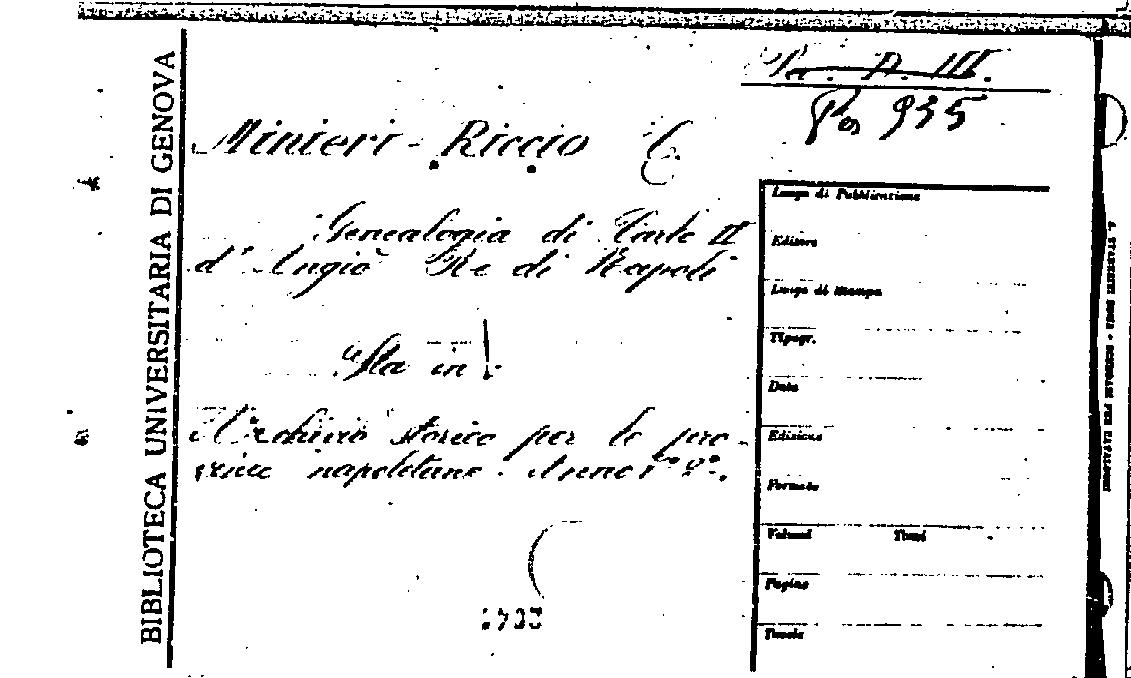 BIBLIOTECA UNIVERSITARIA DI GENOVA
Pa. A. III.
Pa 935
Minieri-Riccio C.
Genealogia di Carlo II
d'Angiò Re di Napoli
Sta in:
Archivio storico per le pro-
vince napoletane. Anno
Luogo di Pubblicazione
Editore
Luogo di stampa
Tipogr.
Data
Edizione
Formato
Volumi Tomi
Pagine
Tavole